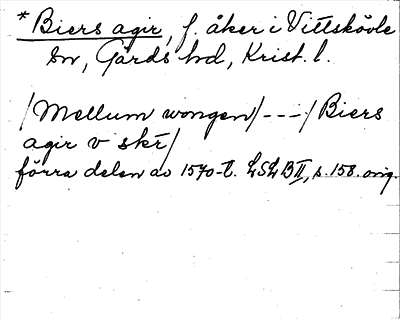 * Biers agir, f. åker i Vittskövle
sn, Gärds hd, Krist. l.
/Mellum wongen/---/Biers
agir v skr/
förra delen av 1570-t. LSLB II, s. 158. orig.